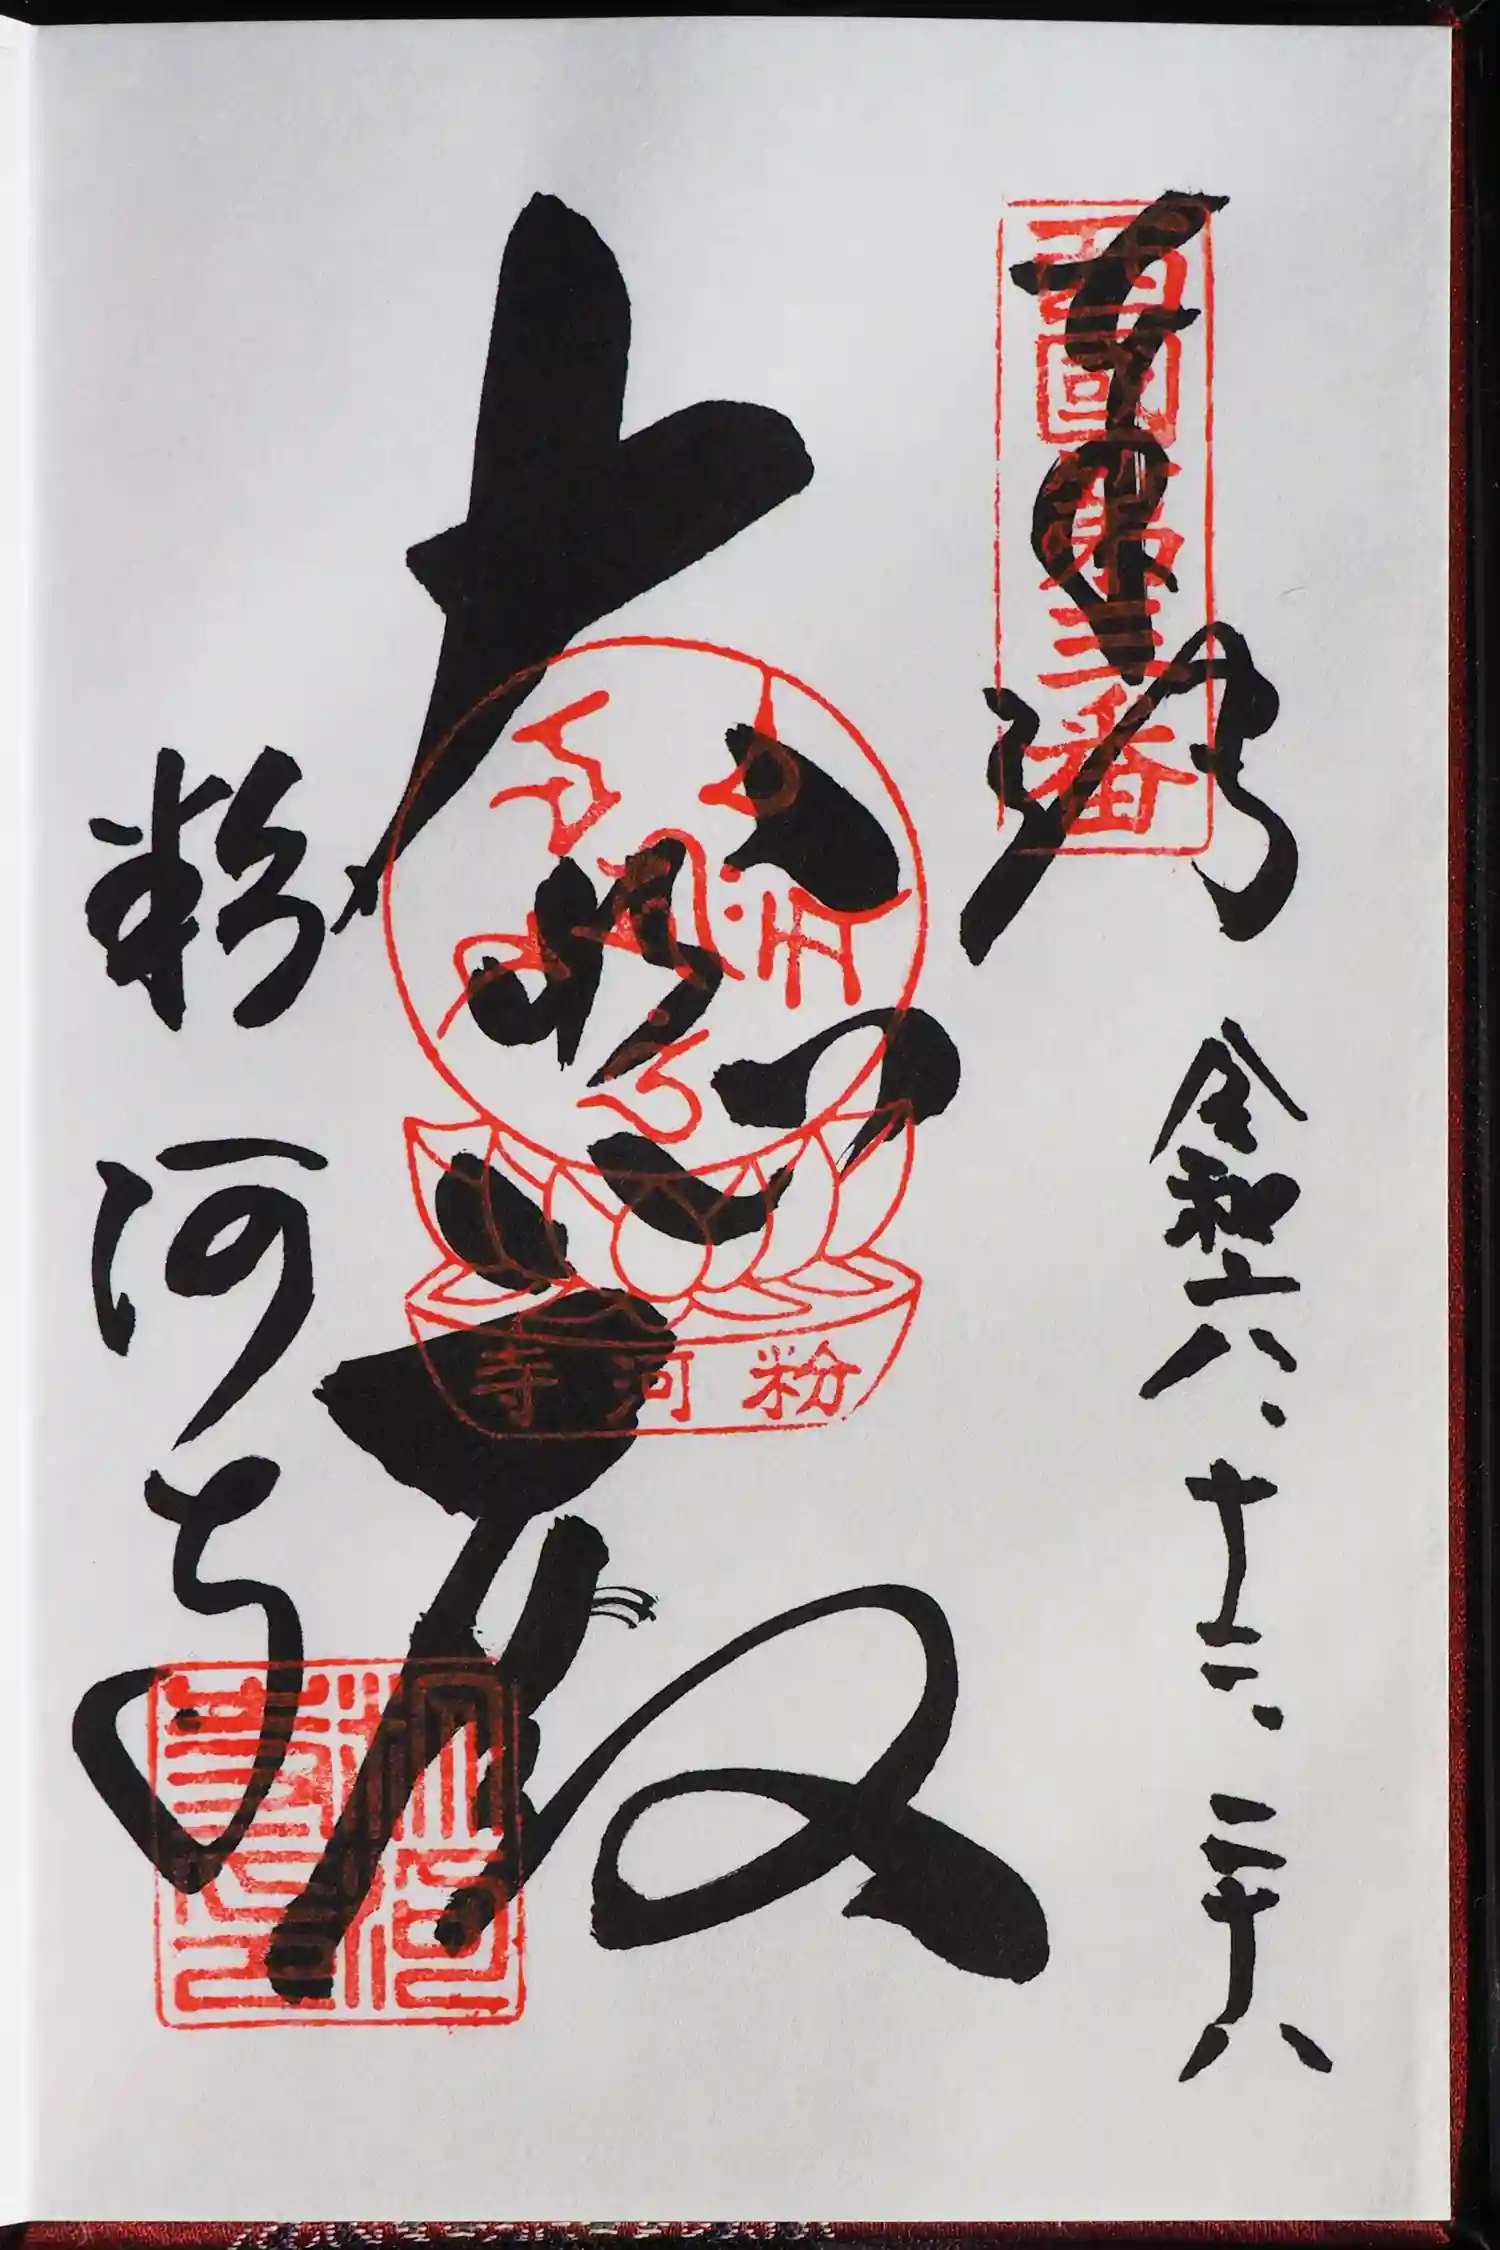 奉拝
西國第三番
令和六、十二、二十八
大悲殿
粉河寺
粉河寺